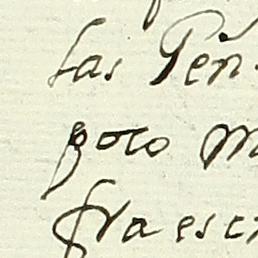 las Pen
poco m
fra escr